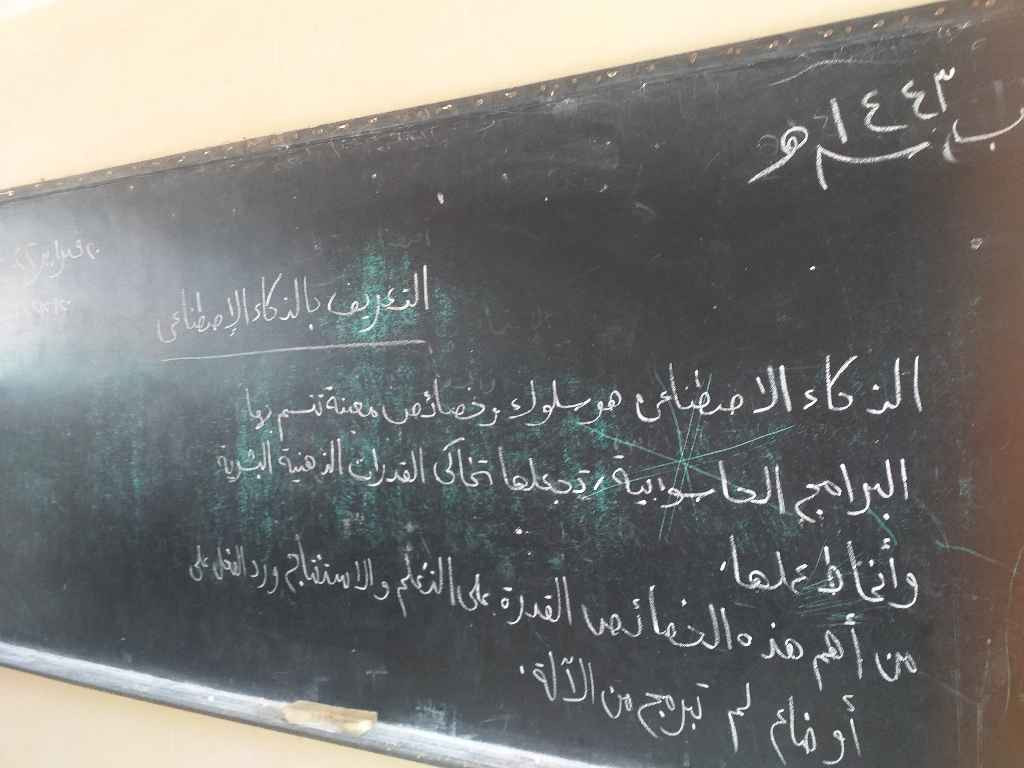 ١٤٤٣هـ
التعريف بالذكاء الإصطناعي
الذكاء الاصطناعي هو سلوك وخصائص معينة تتسم بها
البرامج الحاسوبية، تجعلها تحاكي القدرات الذهنية البشرية
وأنماط عملها.
من أهم هذه الخصائص القدرة على التعلم والاستنتاج ورد الفعل على
أوضاع لم تبرمج من الآلة.